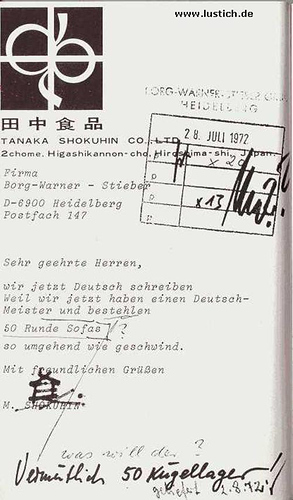 www.lustich.de
BORG-WARNER-STIEBER GMBH
HEIDELBERG
田中食品
TANAKA SHOKUHIN CO., LTD.
2chome. Higashikannon-cho, Hiroshima-shi, Japan.
28. JULI 1972
x 20
x 13
Firma
Borg-Warner - Stieber
D-6900 Heidelberg
Postfach 147
Sehr geehrte Herren,
wir jetzt Deutsch schreiben
Weil wir jetzt haben einen Deutsch-
Meister und bestehlen
50 Runde Sofas ?
so umgehend wie geschwind.
Mit freundlichen Grüßen
M. SHOKUHIN
was will der ?
Vermutlich 50 Kugellager!
geliefert 1.8.72